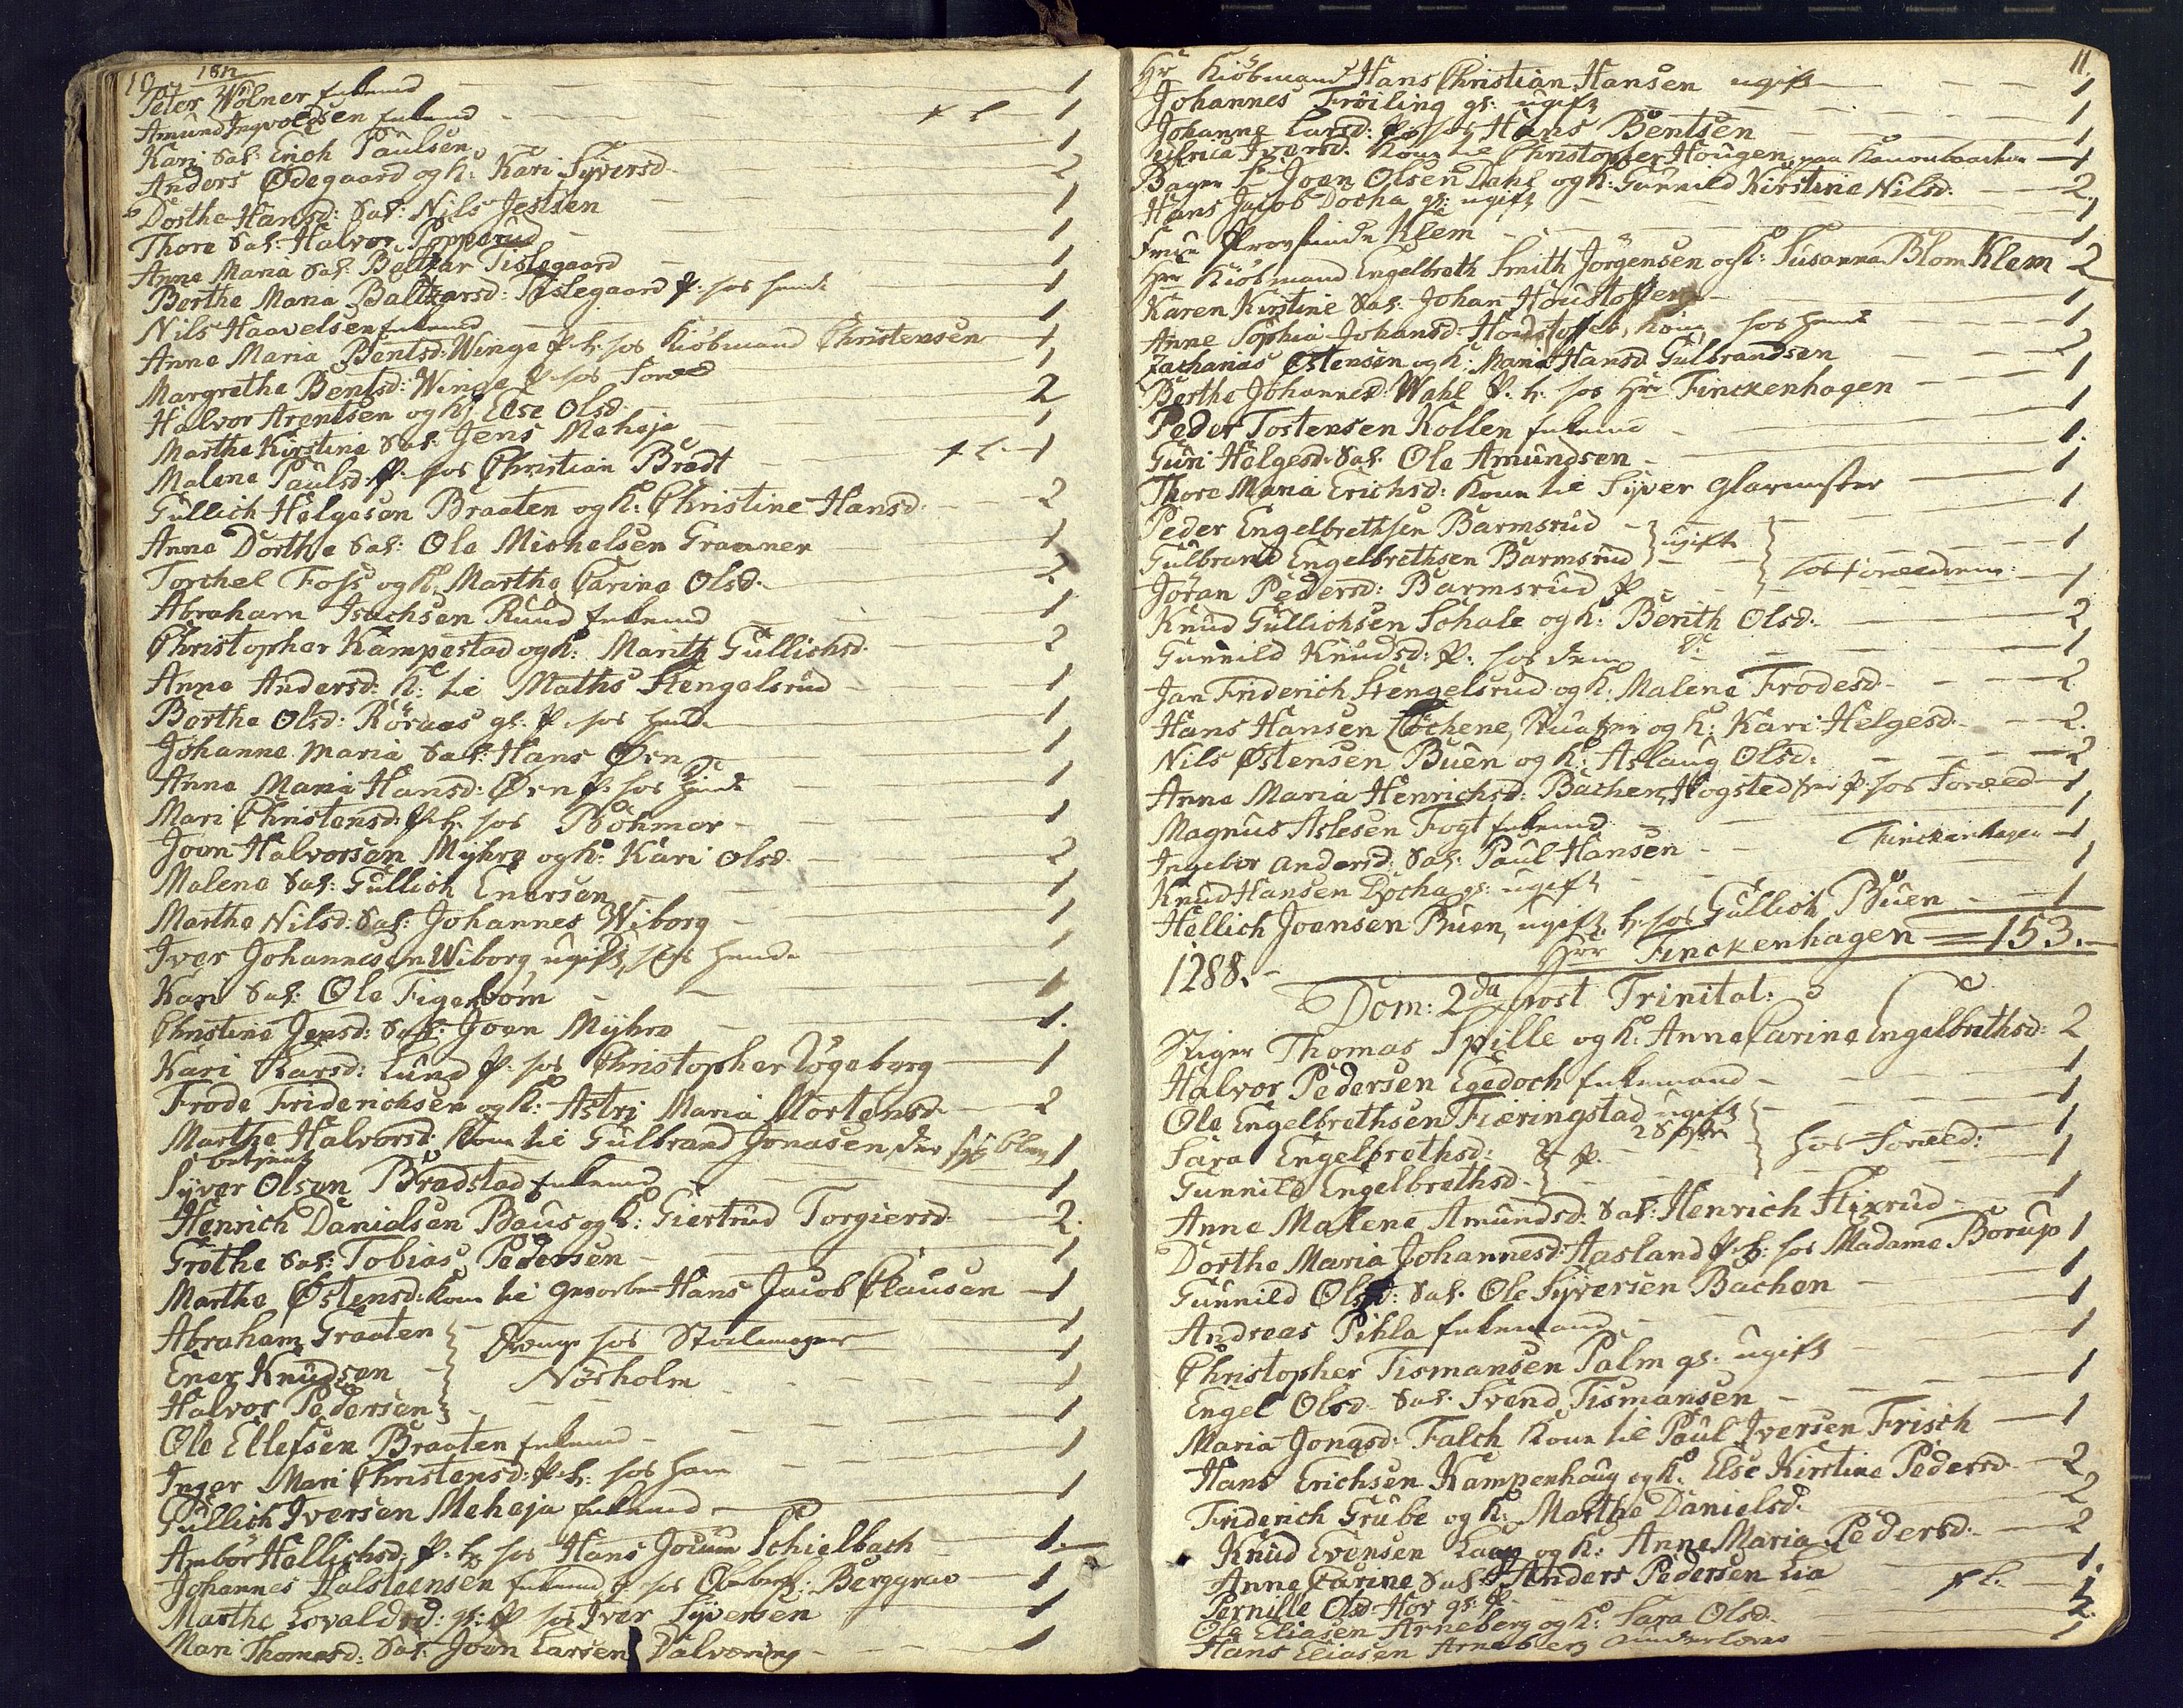 10. 1812
Peter Wölner enkemd 1
Amund Ingvoldsen enkemd 1
Kari Sal: Erich Paulsen 1
Anders Ødegaard og K: Kari Syversd 2
Dorthe Hansd: Sal: Nils Jestsen 1
Thore Sal: Halvor Popperud 1
Anne Maria Sal: Baltzar Tislegaard 1
Berthe Maria Baltzarsd: Tislegaard P. hos hende 1
Nils Haavelsen enkemd 1
Anne Maria Bentsd: Winge P. h: hos Kiöbmand Christensen 1
Margrethe Bentsd: Winge P. hos Foræld 1
Halvor Arentsen og K: Else Olsd 2
Marthe Kirstine Sal: Jens Meheja 1
Malene Paulsd. P. hos Christian Brodt 1
Gullich Helgesen Braaten og K: Christine Hansd. 2
Anne Dorthe Sal: Ole Michelsen Graaner 1
Torchel Foss og K. Marthe Carine Olsd. 2
Abraham Isachsen Ruud enkemd 1
Christopher Kampestad og K: Marith Gullichsd. 2
Anne Andersd: K: til Maths Stengelsrud 1
Berthe Olsd: Röraas gl. P. hos hende 1
Johanne Maria Sal: Hans Örn 1
Anne Maria Hansd: Örn P. hos hende 1
Mari Christensd. P. h. hos Böhmer 1
Joen Halvorsen Myhre og K: Kari Olsd. 2
Malene Sal: Gullich Enersen 1
Marthe Nilsd: Sal: Johannes Wiborg 1
Iver Johannesen Wiborg ugift, hos hende 1
Kari Sal: Ole Figenbom 1
Christine Jensd: Sal: Joen Myhre 1.
Kari Larsd: Lund P. hos Christopher Lögeborg 1
Frode Friderichsen og K: Astri Maria Mortensd. 2
Marthe Halvorsd: Kone til Gulbrand Jonasen, 1
betjent
Syver Olsen Brødstad enkemd 1
Henrich Danielsen Baus og K: Giertrud Torgiersd. 2.
Grethe Sal: Tobias Pedersen 1
Marthe Østensd: Kone til Hans Jacob Clausen 1
Abraham Graaten 1
Ener Knudsen Drenge hos Stadsmager 1
Halvor Pedersen Nörholm 1
Ole Ellefsen Braaten enkemd 1
Inger Mari Christensd: P. h: hos ham 1
Gullich Iversen Meheja enkemd 1
Ambör Hellichsd. P. h. hos Hans Jocum Schielbach 1.
Johannes Halsteensen enkemd hos Oberberg: Berggrav 1
Marthe Lovaldsd: gl: P hos Iver Syversen 1
Mari Thomasd: Sal: Joen Larsen Dalværing 1
11.
Hr Kiöbmand Hans Christian Hansen ugift 1
Johannes Fröiling gl: ugift 1
Johanne Larsd: P. hos Hans Bentsen 1
Iversd. Kone til Christopher Hougen, 1
Bager Joen Olsen Dahl og K: Gunnild Kirstine Nilsd. 2.
Hans Jacob Docha gl: ugift 1
Frue Provstinde Klem 1
Hr Kiöbmand Engelbreth Smith Jörgensen og K: Susanna Blom Klem 2
Karen Kirstine Sal: Johan Houstoffer 1
Anne Sophia Johansd. Houstoffer, hos hende 1
Zacharias Østensen og K: Maria Hansd. Gulbrandsen 2
Berthe Johannesd: Wahl P. h. hos Hr Finckenhagen 1
Peder Tostensen Kollen enkemd 1
Guri Helgesd. Sal: Ole Amundsen 1.
Thore Maria Erichsd: Kone til Syver Glarmester 1
Peder Engelbrethsen Barmsrud 1
Gulbrand Engelbrethsen Barmsrud ugift 1
Jöran Pedersd: Barmsrud P. hos Forældrene. 1
Knud Gullichsen Schale og K: Berith Olsd. 2
Gunnild Knudsd: P. hos dem 1
Jan Friderich Stengelsrud og K: Malene Frodesd. 2
Hans Hansen og K: Kari Helgesd. 2.
Nils Østensen Buen og K: Aslaug Olsd. 2
Anne Maria Henrichsd: Bachen, Hogsted P. hos Foræld 1
Magnus Aslesen Fogt enkemd 1
Ingebor Andersd: Sal: Paul Hansen Finckenhagen 1
Knud Hansen Docha gl: ugift 1
Hellich Joensen Buen, ugift, h: hos Gullich Buen 1
Hr Finckenhagen = 153.
1288.
Dom: 2da post Trinitat:
Stiger Thomas Spille og K. Anne Carine Engelbrethsd: 2
Halvor Pedersen Egedoch enkemand 1
Ole Engelbrethsen Fiæringstad ugift 1
Sara Engelbrethsd: P. 2 Sösten hos Foræld: 1
Gunnild Engelbrethsd. 1
Anne Malene Amundsd: Sal: Henrich Stixrud 1
Dorthe Maria Johannesd: Aasland P. h: hos Madame Borup 1
Gunnild Olsd: Sal. Ole Syversen Bachen 1
Andreas Pihla enkemand 1
Christopher Tismansen Palm gl. ugift 1
Engel Olsd. Sal. Svend Tismansen 1
Maria Jonasd. Falch Kone til Paul Iversen Frisch 1
Hans Erichsen Kampenhaug og K. Else Kirstine Pedersd. 2
Friderich Grube og K: Marthe Danielsd. 2
Knud Evensen Laag og K: Anne Maria Pedersd. 2
Anne Carine Sal: Anders Pedersen Lia 1.
Pernille Olsd. Hov gl. P. 1
Ole Eliasen Arneberg og K: Sara Olsd. 2.
Hans Eliasen Arneberg 1